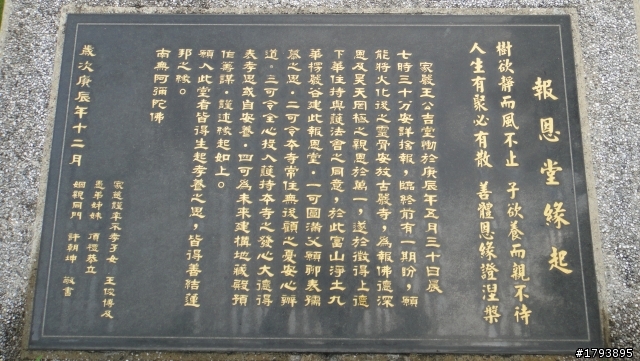 報恩堂緣起
樹欲靜而風不止 子欲養而親不待
人生有聚必有散 善體恩緣證涅槃
家嚴王公吉堂慟於庚辰年五月三十日辰
七時三十万安詳捨報，臨終前有一期盼，願
能將火化後之靈骨安放古嚴寺，為報佛德深
恩及昊天罔極之親恩於萬一，遂於徵得上德
下華住持與護法會之同意，於此富山淨土九
華樗鬆谷建此報恩堂．一可圓滿父願聊表孺
慕之思．二可令本寺常住無後顧之憂安心辦
道．三可令全心投入護持本寺之發心大德得
表孝思或自安養．四可為未來建構地藏殿預
作籌謀．謹述緣起如上。
願入此堂者皆得生起孝養之思，皆得善結蓮
邦之緣。
南無阿彌陀佛
歲次庚辰年十二月
家慈 率不孝子女 王俊傅及
弟姊妹 頂禮恭立
姻親同門 許朝坤 敬書
#1793895